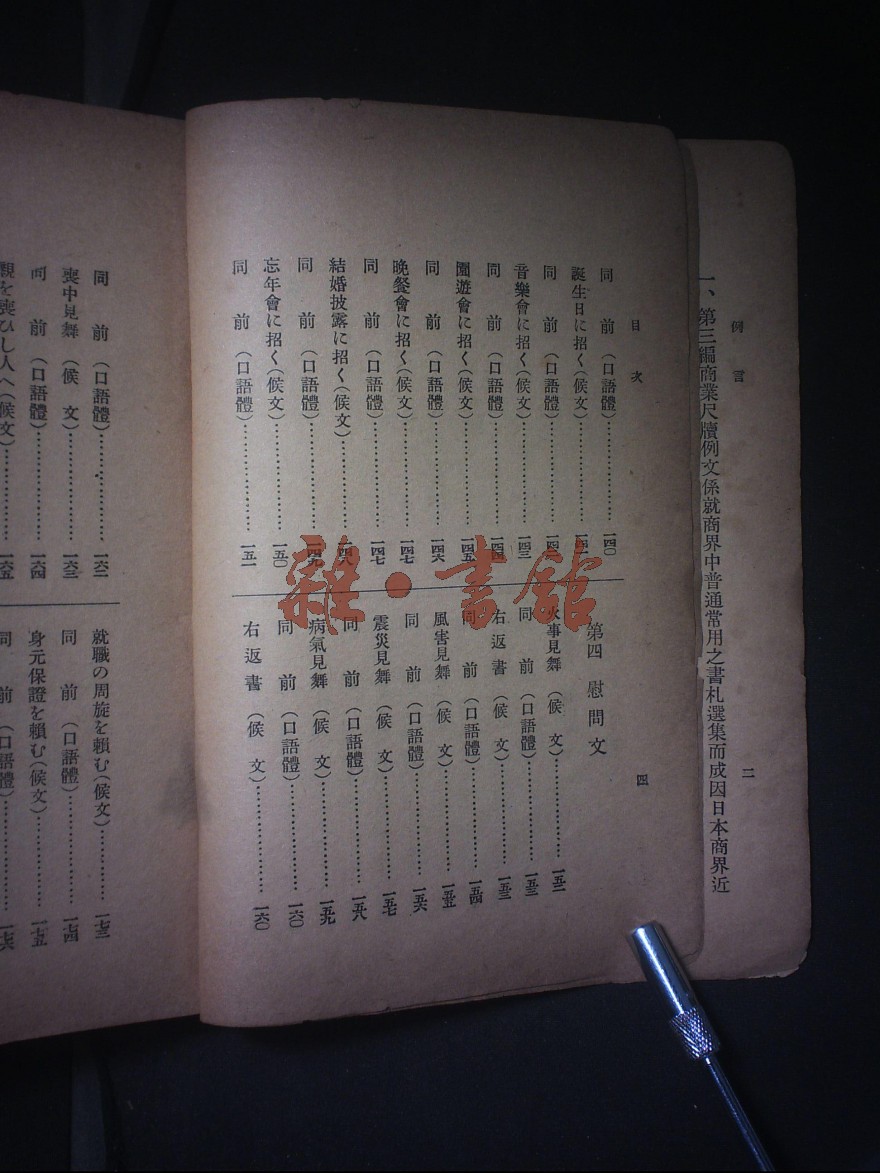 例言
二
一、第三編商業尺牘例文係就商界中普通常用之書札選集而成因日本商界近
目次
四
同前(口語體)…………一四〇
誕生日に招く(候文)…………一四一
同前(口語體)…………一四二
音樂會に招く(候文)…………一四三
同前(口語體)…………一四四
園遊會に招く(候文)…………一四五
同前(口語體)…………一四六
晩餐會に招く(候文)…………一四七
同前(口語體)…………一四七
結婚披露に招く(候文)…………一四八
同前(口語體)…………一四九
忘年會に招く(候文)…………一五〇
同前(口語體)…………一五一
第四 慰問文
火事見舞(候文)…………一五二
同前(口語體)…………一五三
右返書(候文)…………一五三
同前(口語體)…………一五四
風害見舞(候文)…………一五五
同前(口語體)…………一五六
震災見舞(候文)…………一五七
同前(口語體)…………一五八
病氣見舞(候文)…………一五九
同前(口語體)…………一六〇
右返書(候文)…………一六〇
同前(口語體)…………一六二
喪中見舞(候文)…………一六三
同前(口語體)…………一六四
親を喪ひし人へ(候文)…………一六五
就職の周旋を賴む(候文)…………一七三
同前(口語體)…………一七四
身元保證を賴む(候文)…………一七五
同前(口語體)…………一七六
雜·書館